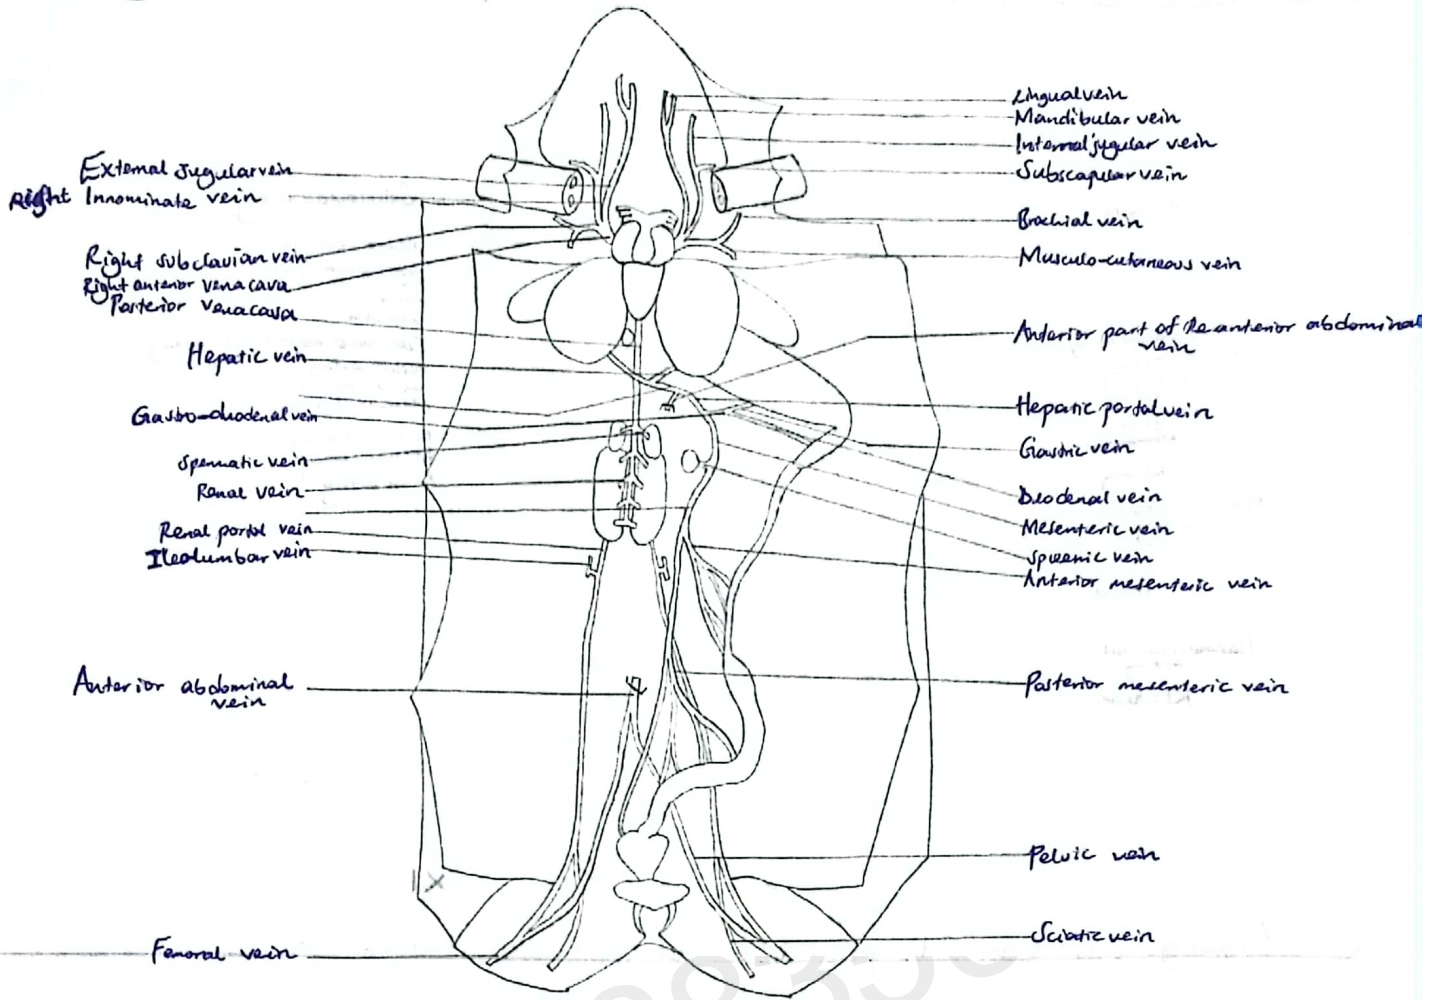 External jugular vein
Right Innominate vein
Right subclavian vein
Right anterior vena cava
Posterior vena cava
Hepatic vein
Gastro-duodenal vein
Spermatic vein
Renal vein
Renal portal vein
Ileolumbar vein
Anterior abdominal
vein
Femoral vein
Lingual vein
Mandibular vein
Internal jugular vein
Subscapular vein
Brachial vein
Musculo-cutaneous vein
Anterior part of the anterior abdominal
vein
Hepatic portal vein
Gastric vein
Duodenal vein
Mesenteric vein
Spleenic vein
Anterior mesenteric vein
Posterior mesenteric vein
Pelvic vein
Sciatic vein